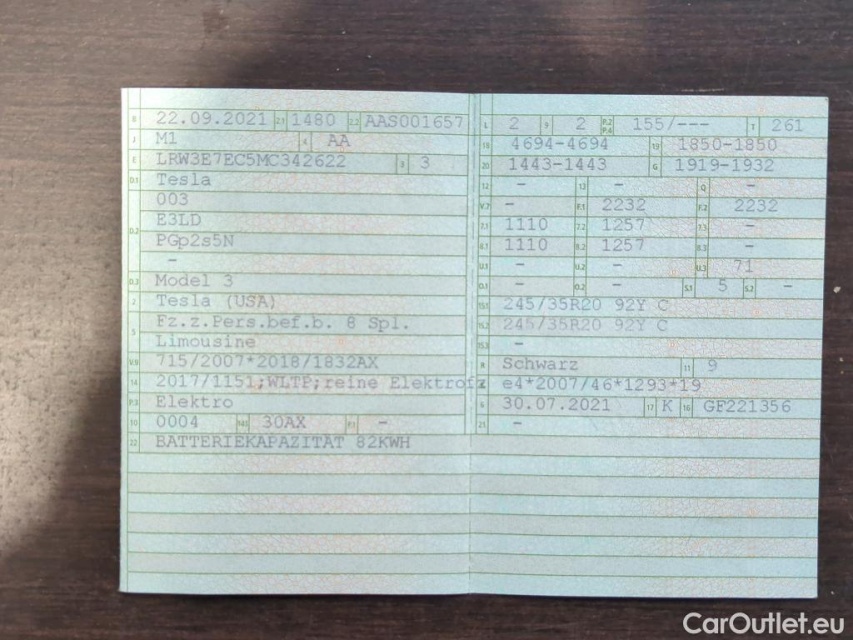 B 22.09.2021 2.1 1480 2.2 AAS001657
J M1 4 AA
E LRW3E7EC5MC342622 3 3
D.1 Tesla
003
D.2 E3LD
PGp2s5N
–
D.3 Model 3
2 Tesla (USA)
5 Fz.z.Pers.bef.b. 8 Spl.
Limousine
V.9 715/2007*2018/1832AX
14 2017/1151;WLTP;reine Elektrofz
P.3 Elektro
10 0004 14.1 30AX P.1 –
22 BATTERIEKAPAZITÄT 82KWH
L 2 9 2 P.2 P.4 155/--- T 261
18 4694-4694 19 1850-1850
20 1443-1443 G 1919-1932
12 – 13 – Q –
V.7 – F.1 2232 F.2 2232
7.1 1110 7.2 1257 7.3 –
8.1 1110 8.2 1257 8.3 –
U.1 – U.2 – U.3 71
O.1 – O.2 – S.1 5 S.2 –
15.1 245/35R20 92Y C
15.2 245/35R20 92Y C
15.3 –
R Schwarz 11 9
K e4*2007/46*1293*19
6 30.07.2021 17 K 16 GF221356
21 –
CarOutlet.eu